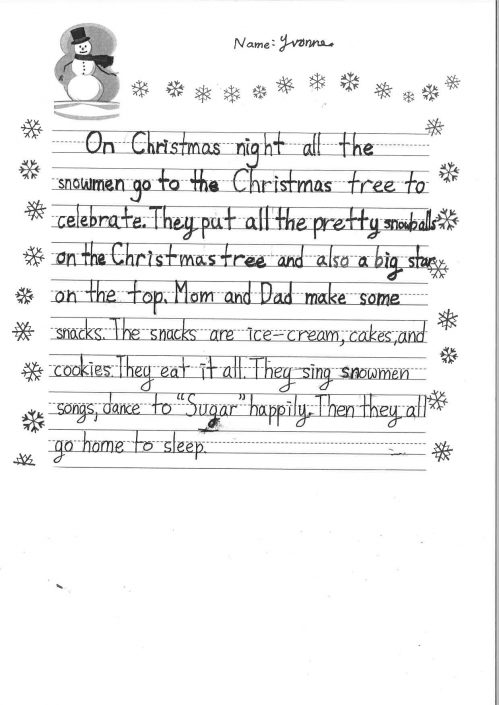 Name: Yvonne
On Christmas night all the
snowmen go to the Christmas tree to
celebrate. They put all the pretty snowballs
on the Christmas tree and also a big star
on the top. Mom and Dad make some
snacks. The snacks are ice-cream, cakes, and
cookies. They eat it all. They sing snowmen
songs, dance to "Sugar" happily. Then they all
go home to sleep.